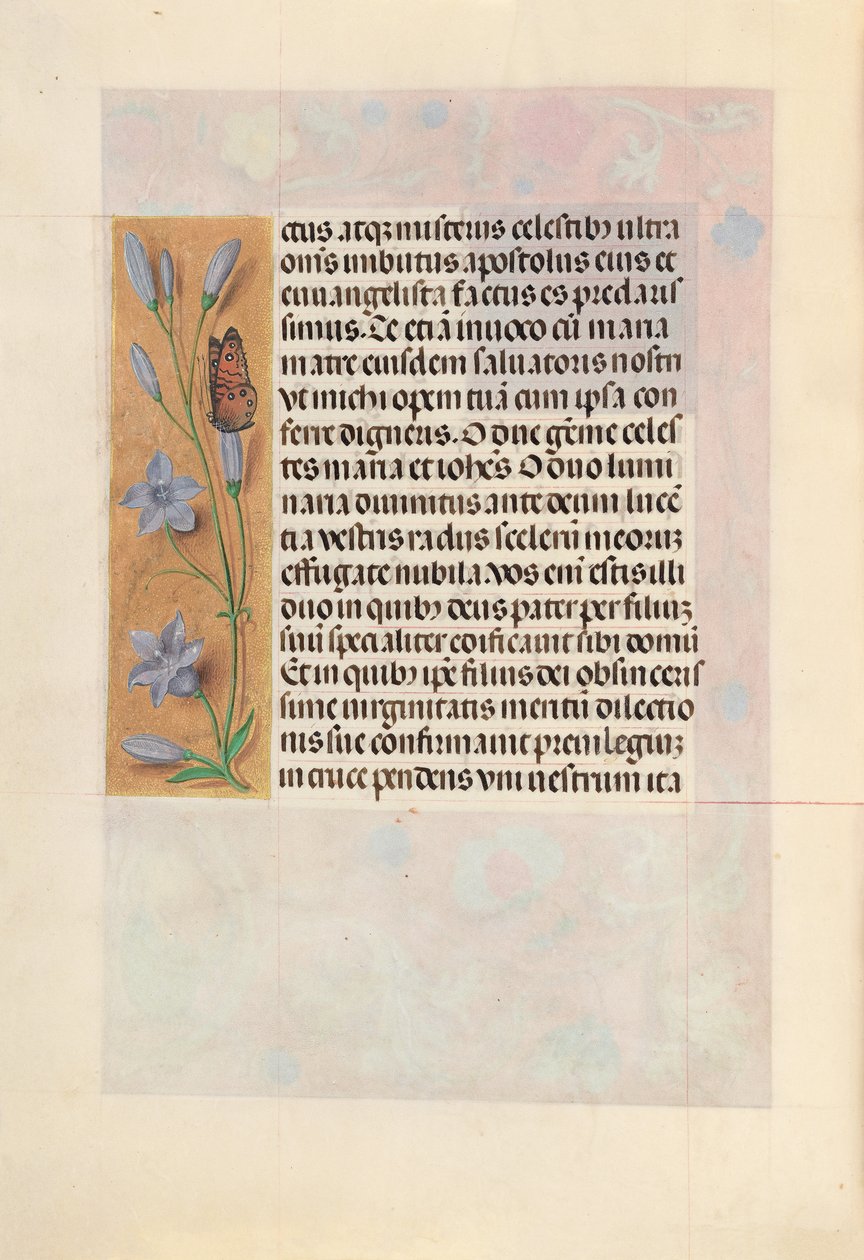 ctus atqꝫ misteriis celestibꝰ ultra
om̄s imbutus apostolus eius et
euuangelista factus es preclaris
simus. Te etiā inuoco cū maria
matre eiusdem saluatoris nostri
vt michi opem tuā cum ipsa con
ferre digneris. O due gēme celes
tes maria et ioh̄es O duo lumi
naria diuinitus ante deum lucē
tia vestris radiis scelerū meorūꝫ
effugate nubila. vos eni̅ estis illi
duo in quibꝰ deus pater per filiuꝫ
suū specialiter edificauit sibi domū
Et in quibꝰ ip̄e filius dei ob sinceris
sime uirginitatis meritū dilectio
nis sue confirmauit preuilegiuꝫ
in cruce pendens vni uestrum ita